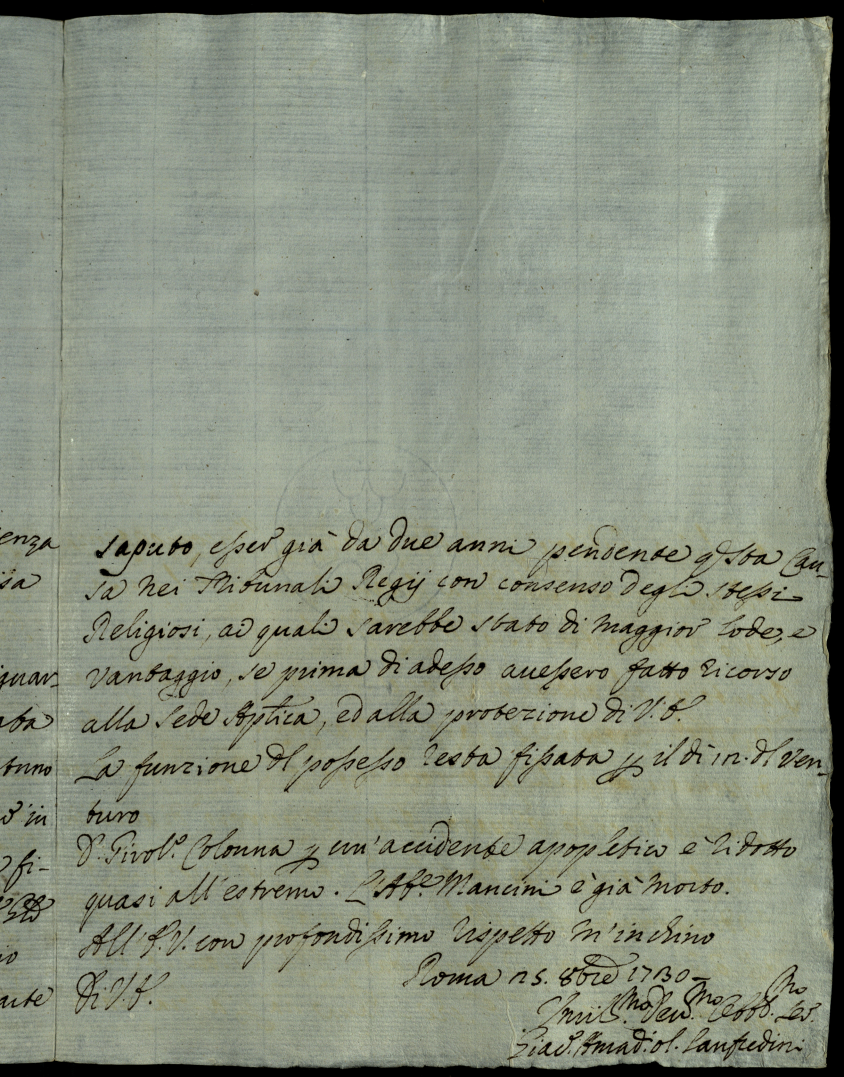 enza
saputo, esser già da due anni pendente q͠sta Cau-
sa nei Tribunali Regij con consenso degli stessi
Religiosi, ai quali sarebbe stato di maggior lode, e
vantaggio, se prima di adesso avessero fatto ricorso
alla Sede Aplica, ed alla protezione di V.S.
La funzione dl possesso resta fissata p il dì 12. dl ven-
turo
Dn. Girol.º Colonna p un'accidente apopletico è ridotto
quasi all'estremo. L'Ab.e Mancini è già morto.
All'S.V. con profondissimo rispetto m'inchino
Di V.S.
Roma 25. 8bre 1730
Umil.mo Dev.mo Obb.mo Ser.
Giac. Amad. Lanfredini